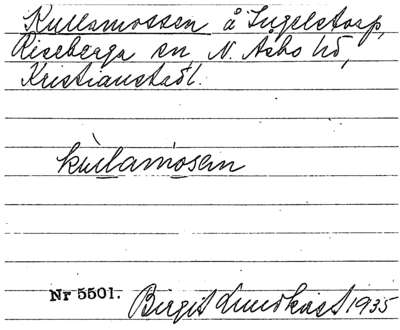 Kullamossen å Ingelstorp,
Riseberga sn, N. Åsbo hd,
Kristianstad l.
kullamosen
Nr 5501. Birgit Lundkvist 1935